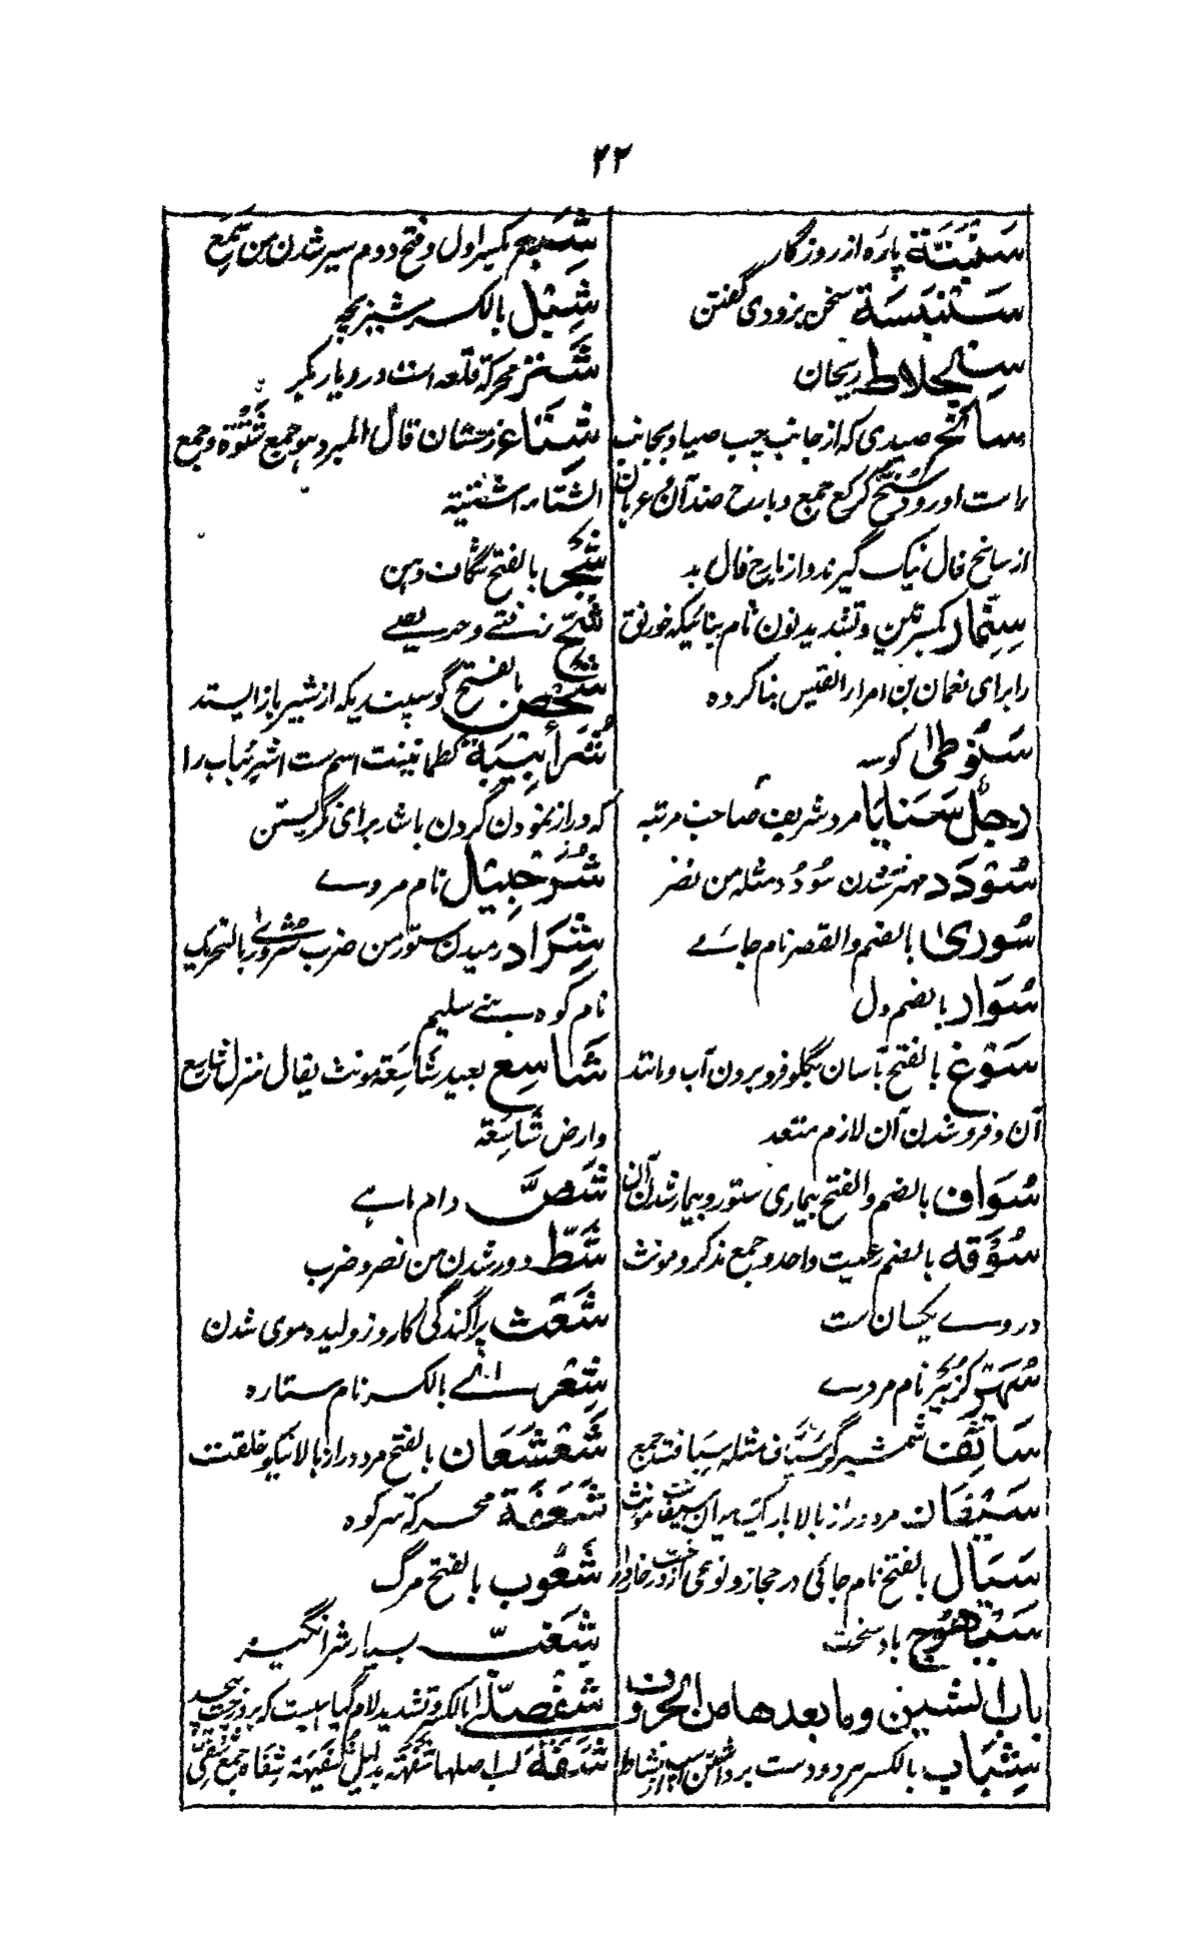 ٢٢
سَنْبَتَة پاره از روزگار
سَنْبَسَة سخن بزودی گفتن
سِنجِلاط ریحان
سانح صیدی که از جانب چپ صیاد بجانب
راست او رود سُنَّح کرکع جمع و بارح ضد آن و عربان
از سانح فال نیک گیرند و از بارح فال بد
سِنِمّار بکسرتین و تشدید نون نام بنائیکه خورنق
را برای نعمان بن امرء القیس بنا کرده
سَنُوطیٰ کوسه
رجلٌ سَنَایا مرد شریف صاحب مرتبه
سُوْدَد مهتر شدن سُؤدُد مثله من نصر
سُوریٰ بالضم والقصر نام جائے
سُوَار بالضم دل
سَوْغ بالفتح آسان بگلو فرو بردن آب و مانند
آن و فرو شدن آن لازم متعد
سُوَاف بالضم والفتح بیماری ستور و بیمار شدن آن
سُوْقَه بالضم رعیت واحد و جمع مذکر و مونث
در وے یکسان ست
سُهَیْر کزبیر نام مردے
سَائِف شمشیر گر سَیَّاف مثله سیافة جمع
سَیْفَان مرد دراز بالا باریک میان سیفانة مونث
سَیَال بالفتح نام جائی در حجاز و نوعی از درخت خاردار
سَیْهُوج باد سخت
باب الشین وما بعدها من الحروف
شِبَاب بالکسر هر دو دست برداشتن اسپ از نشاط
شِبَع بکسر اول و فتح دوم سیر شدن من سمع
شِبْل بالکسر شیر بچه
شَتَر محرکة قلعه است در دیار بکر
شِتَاء زمستان قال المبرد هو جمع شَتْوَة و جمع
الشتاء اشتیة
شَجْر بالفتح شگاف دهن
شُحّ زفتے و حریصے
شَخْص بالفتح گوسپندیکه از شیر باز ایستد
شُرَأْبِیْبَة کطمانینت اسم ست اشرئباب را
که دراز نمودن گردن باشد برای نگریستن
شُرَحْبِیْل نام مردے
شِرَاد رمیدن ستور من ضرب شروریٰ بالتحریک
نام کوه بنے سلیم
شَاسِع بعید شَاسِعَة مونث یقال منزل شاسع
وارض شَاسِعَة
شَصّ دام ماہے
شَطّ دور شدن من نصر و ضرب
شَعَث پراگندگی کار و ژولیده موی شدن
شِعْریٰ بالکسر نام ستاره
شَعْشَعَان بالفتح مرد دراز بالا نیکو خلقت
شَعَفَة محرکة سر کوه
شَعُوب بالفتح مرگ
شَغِبّ بسیار شر انگیز
شِفْصِلّیٰ بالکسر و تشدید لام گیاهیست که بر درخت پیچد
شَفَة لب اصلها شفهة بدلیل شُفَیْهَة شِفَاه جمع شَفَهِیّ